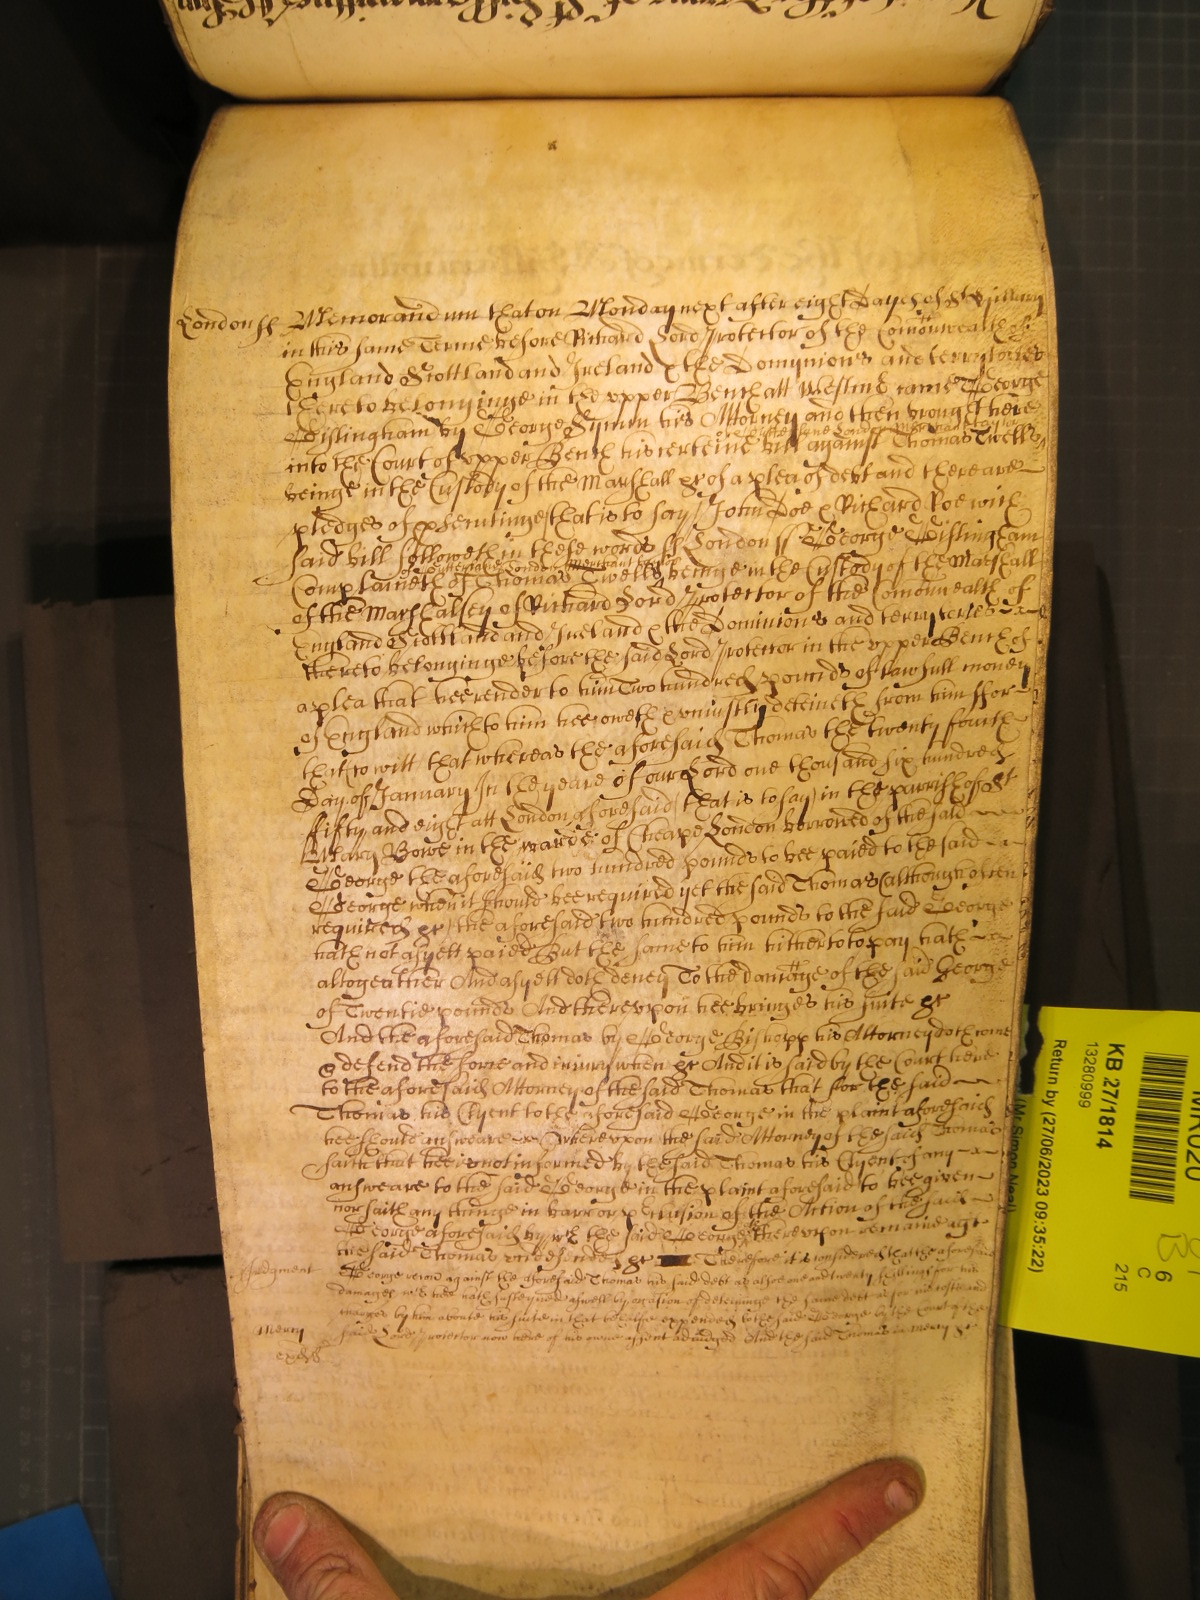 London ss Memorandum that on Monday next after eight Dayes of St Hillary
in this same Terme before Richard Lord Protector of the Comonwealth of
England Scottland and Ireland & the Dominions and terrytories
thereto belonginge in the upper Bench att Westm came George
by George his Attorney and then brought here
into the Court of upper Bench his certeine bill against Thomas Twells
beinge in the Custody of the Marshall &c of a plea of debt and there are
pledges of prosecutinge that is to say John Doe & Richard Roe which
said bill followeth in these words ss London ss George
Complaineth of Thomas Twells beinge in the Custody of the Marshall
of the Marshalsey of Richard Lord Protector of the Comonwealth of
England Scottland and Ireland & the Dominions and terrytories
thereto belonginge before the said Lord Protector in the upper Bench of
a plea that hee render to him Two hundred pounds of lawfull money
of England which to him hee oweth & uniustly deteineth from him ffor
that to witt that whereas the aforesaid Thomas the twenty fourth
Day of January In the yeare of our Lord one thousand six hundred
fifty and eight att London aforesaid that is to say in the parrish of St
Mary Bowe in the warde of Cheape London borrowed of the said
George the aforesaid two hundred pounds to bee paied to the said
George when it should bee required yet the said Thomas (although often
required &c) the aforesaid two hundred pounds to the said George
hath not as yett paied But the same to him hitherto to pay hath
altogeather And as yett doth deney To the damage of the said George
of Twentie pounds And thereupon hee bringes his suite &c
And the aforesaid Thomas by George Bishopp his Attorney doth come
& defend the force and iniury when &c And it is said by the Court here
to the aforesaid Attorney of the said Thomas that for the said
Thomas his Clyent to the aforesaid George in the plaint aforesaid
hee should answeare Whereupon the said Attorney of the said Thomas
saith that hee is not informed by the said Thomas his Clyent of any
answeare to the said George in the plaint aforesaid to bee given
nor saith any thinge in barr or preclusion of the Action of the said
George aforesaid by wch the said George thereupon remaine agt
the said Thomas undefended &c Therefore it is considered that the aforesaid
Judgment George recover against the aforesaid Thomas his said debt as also one and twenty shillings for his
damages wch hee hath susteyned aswell by occasion of deteininge the same debt as for his costs and
charges by him about his suite in that behalfe expended to the said George by the Court of the
Mercy said Lord Protector now here of his owne assent adiudged And the said Thomas in mercy &c
KB 27/1814
13280999
Return by (27/06/2023 09:35:22)
(Mr Simon Neal)
B 6
C
215